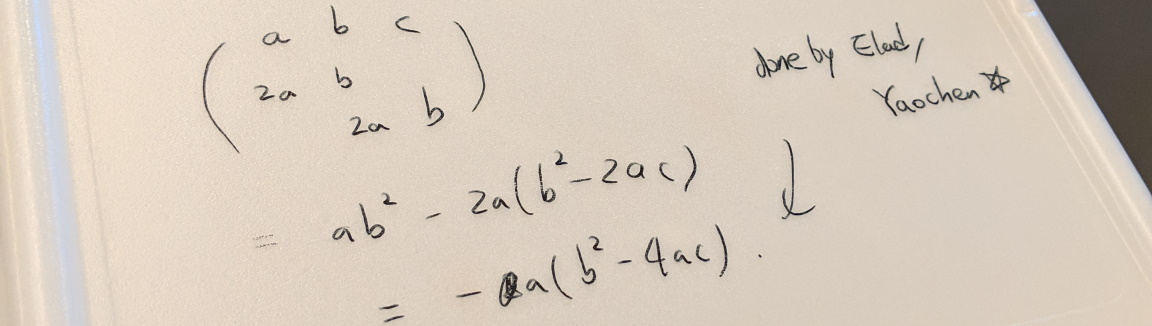 a b c
2a b
2a b
done by Elad,
Yaochen
= ab² - 2a(b² - 2ac)
= - a(b² - 4ac).